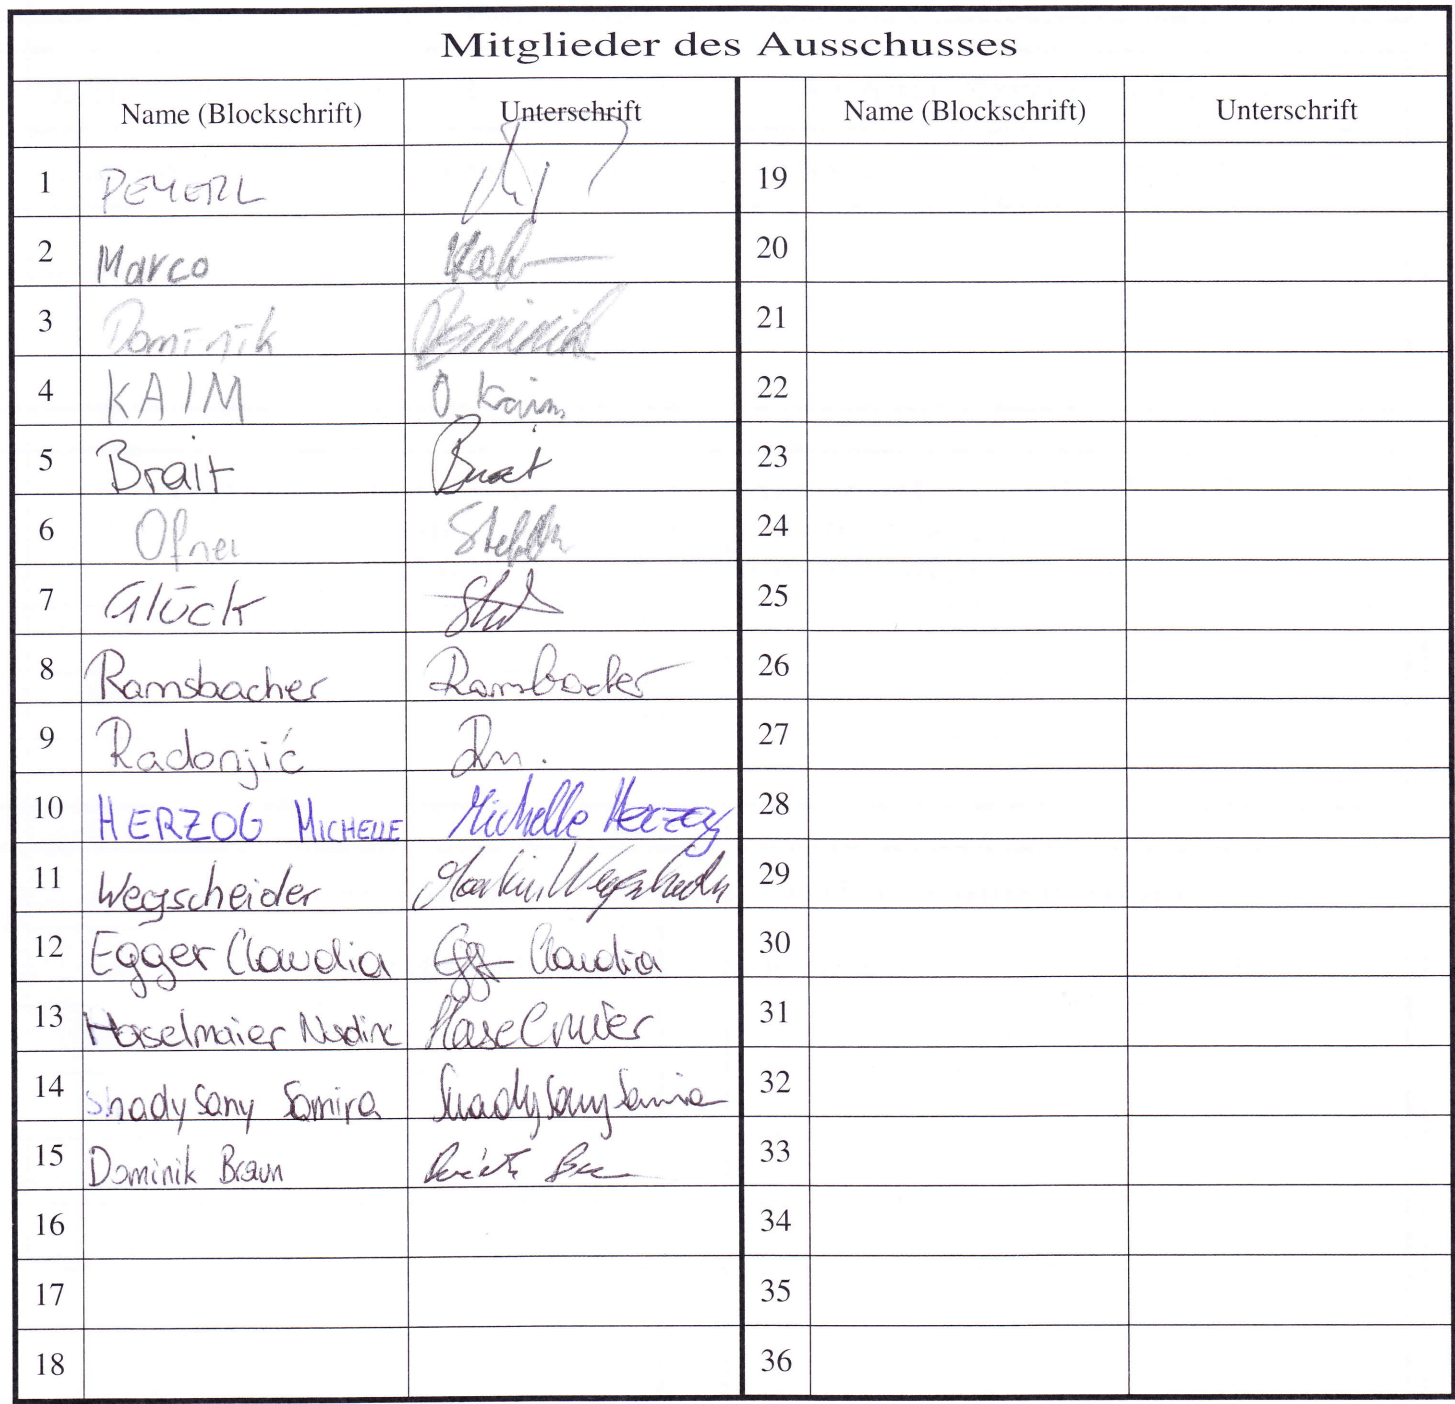 Mitglieder des Ausschusses
Name (Blockschrift) Unterschrift Name (Blockschrift) Unterschrift
1 PEYERL 19
2 Marco 20
3 Dominik Dominik 21
4 KAIM O. Kaim 22
5 Brait Brait 23
6 Ofner Stefan 24
7 Glück 25
8 Ramsbacher Ramsbacher 26
9 Radonjić 27
10 HERZOG MICHELLE Michelle Herzog 28
11 Wegscheider Martin Wegscheider 29
12 Egger Claudia Egger Claudia 30
13 Haselmaier Nadine Haselmaier 31
14 Shady Samy Samira Shady Samy Samira 32
15 Dominik Braun 33
16 34
17 35
18 36